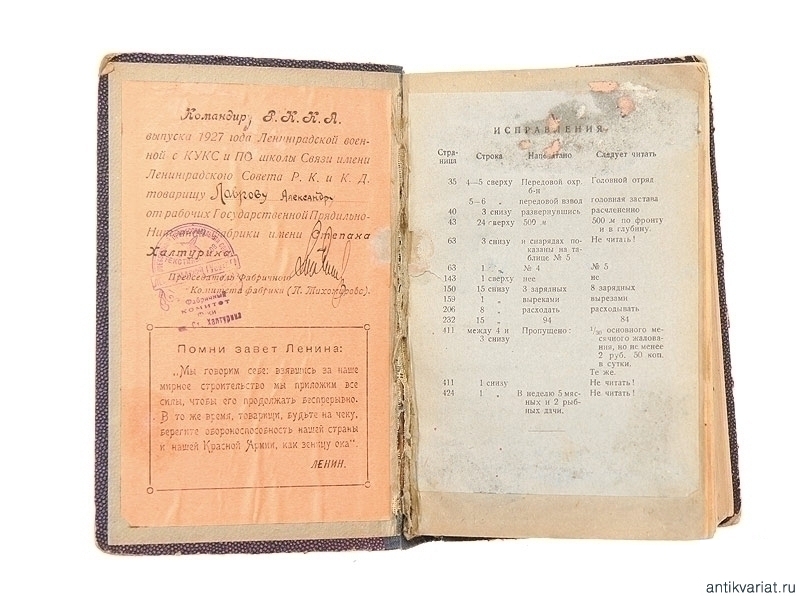 Командиру Р. К. К. А.
выпуска 1927 года Ленинградской воен-
ной с КУКС и ПО школы Связи имени
Ленинградского Совета Р. К. и К. Д.
товарищу Лаврову Александру
от рабочих Государственной Прядильно-
Ниточной фабрики имени Степана
Халтурина.
Председатель Фабричного
Комитета фабрики (П. Тихомиров).
Фабричный
КОМИТЕТ
Ст. ХАЛТУРИНА
Помни завет Ленина:
„Мы говорим себе: взявшись за наше
мирное строительство мы приложим все
силы, чтобы его продолжать беспрерывно.
В то же время, товарищи, будьте на чеку,
берегите обороноспособность нашей страны
и нашей Красной Армии, как зеницу ока".
ЛЕНИН.
ИСПРАВЛЕНИЯ
Стра-
ница Строка Напечатано Следует читать
35 4—5 сверху Передовой охр. Головной отряд
б-н
5—6 „ передовой взвод головная застава
40 3 снизу развернувшись расчлененно
43 24 сверху 500 м 500 м по фронту
и в глубину.
63 3 снизу и снарядах по- Не читать!
казаны на та-
блице № 5
63 1 „ № 4 № 5
143 1 сверху нет не
150 15 снизу 3 зарядных 8 зарядных
159 1 „ выреками вырезами
206 8 „ расходать расходывать
232 15 „ 94 84
411 между 4 и Пропущено: 1/30 основного ме-
3 снизу сячного жалова-
ния, но не менее
2 руб. 50 коп.
в сутки.
Те же.
411 1 снизу Не читать!
424 1 „ В неделю 5 мяс- Не читать!
ных и 2 рыб-
ных дачи.
antikvariat.ru